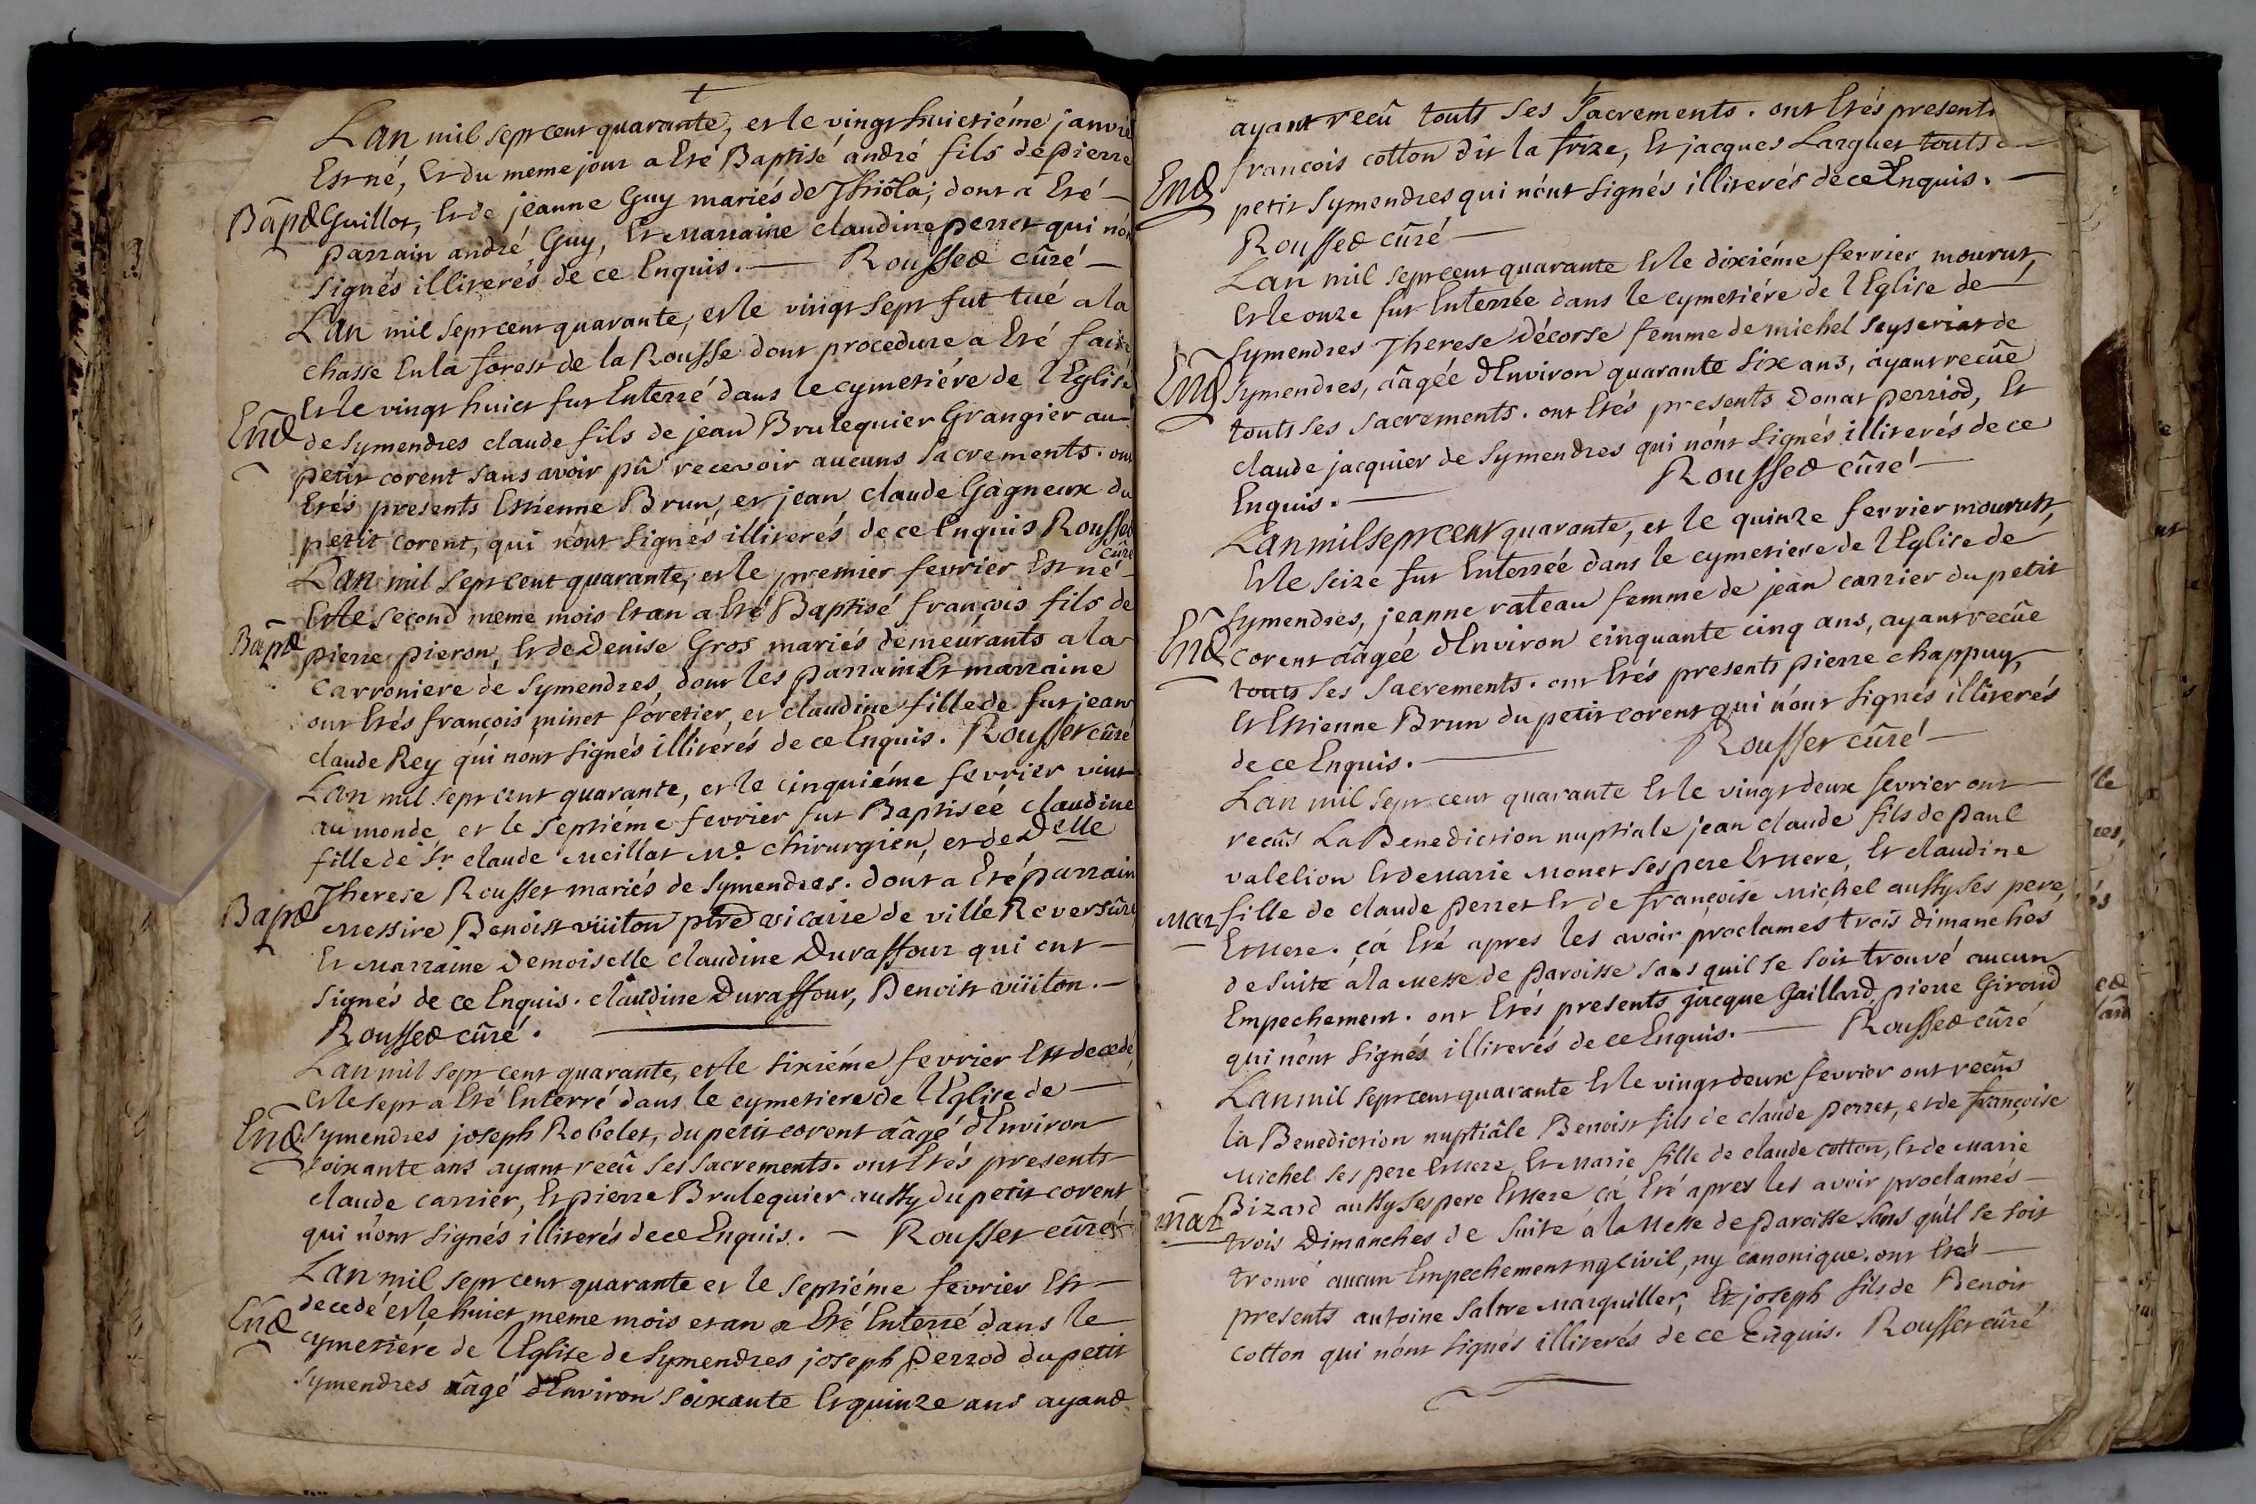 Lan mil sept cent quarante, et le vingt huictiéme janvie
Est né, Et du meme jour a Eté Baptisé andré fils de pierre
Bapt Guillot, Et de jeanne Guy mariés de Thiôla, dont a Eté
parrain andré Guy, Et Marraine claudine perret qui nón
signés illiterés de ce Enquis. — Rousset cûré —
Lan mil sept cent quarante, et le vingt sept fut tué a la
chasse En la forest de la Rousse dont procedure a Eté faite
Et le vingt huict fut Enterré dans le cymetiére de l'Eglise
Ent de Symendres claude fils de jean Brulequier Grangier au
petit corent sans avoir pû recevoir aucuns Sacrements. ont
Etés presents Estienne Brun, et jean claude Gagneux du
petit corent, qui nónt signés illiterés de ce Enquis Rousset
cûré
Lan mil sept cent quarante, et le premier fevrier Est né
Et le second meme mois Et an a Eté Baptisé françois fils de
Bapt pierre pieron, Et de Denise Gros mariés demeurants a la
Carroniere de Symendres, dont les parrain Et marraine
ont Etés françois minet foretier, et claudine fille de fut jean
claude Rey qui nónt signés illiterés de ce Enquis. Rousset cûré
Lan mil sept cent quarante, et le cinquiéme fevrier vint
au monde et le septiéme fevrier fut Baptiseé claudine
fille de Sr claude Meillat Me chirurgien, et de Delle
Bapt Therese Rousset mariés de Symendres. dont a Eté parrain
Messire Benoist viiiton ptre vicaire de ville Reversûre
Et Marraine Demoiselle claudine Duraffour qui ont
signés de ce Enquis. claudine Duraffour, Benoist viiiton. —
Rousset cûré.
Lan mil sept cent quarante, et le sixiéme fevrier Est decedé,
et le sept a Eté Enterré dans le cymetiere de l'Eglise de
Ent Symendres joseph Robelet, du petit corent aâgé d'Environ
soixante ans ayant recû ses sacrements. ont Etés presents
claude carrier, Et pierre Brulequier aussy du petit corent
qui nónt signés illiterés de ce Enquis. — Rousset cûré
Lan mil sept cent quarante et le septiéme fevrier Est
decedé et le huict meme mois et an a Eté Enterré dans le
Ent cymetiére de l'Eglise de Symendres joseph Perrod du petit
Symendres aâgé d'Environ soixante Et quinze ans ayant
ayant recû touts ses Sacrements. ont Etés present
francois cotton dit la frize, Et jacques Larguet touts
Ent petit Symendres qui nónt signés illiterés de ce Enquis. —
Rousset cûré —
Lan mil sept cent quarante Et le dixiéme fevrier mourut,
Et le onze fut Enterrée dans le cymetiére de l'Eglise de
Symendres Therese décorse femme de michel Seyseriat de
Ent Symendres, aâgée d'Environ quarante six ans, ayant recûe
touts ses Sacrements. ont Etés presents Donat perriod, Et
claude jacquier de Symendres qui nónt signés illiterés de ce
Enquis. — Rousset cûré —
Lan mil sept cent quarante, et le quinze fevrier mourutt,
Et le seize fut Enterréé dans le cymetiere de l'Eglise de
Symendres, jeanne rateau femme de jean carrier du petit
Ent corent aâgée d'Environ cinquante cinq ans, ayant recûe
touts ses Sacrements. ont Etés presents pierre chappuy,
et Estienne Brun du petit corent qui nónt signés illiterés
de ce Enquis. — Rousset cûré —
Lan mil sept cent quarante Et le vingt deux fevrier ont
recûs La Benediction nuptiale jean claude fils de paul
valelion Et de Marie Monet ses pere Et Mere, Et claudine
Mar fille de claude perret Et de françoise Michel aussy ses pere,
Et Mere. çá Eté apres les avoir proclames trois dimanches
de suite a la Messe de paroisse sans quil se soit trouvé aucun
Empechement. ont Etés presents jacque Gaillard, pierre Giroud
qui nónt signés illiterés de ce Enquis. — Rousset cûré
Lan mil sept cent quarante Et le vingt deux fevrier ont recûs
la Benediction nuptiâle Benoist fils de claude perret, et de françoise
Michel ses pere Et Mere, Et Marie fille de claude cotton, Et de Marie
Mar Bizard aussy ses pere Et Mere çá Eté apres les avoir proclamés
trois Dimanches de suite a la Messe de paroisse sans quil se soit
trouvé aucun Empechement ny civil, ny canonique. ont Etés
presents antoine Saltre Marguiller, Et joseph fils de Benoit
cotton qui nónt signés illiterés de ce Enquis. Rousset cûré